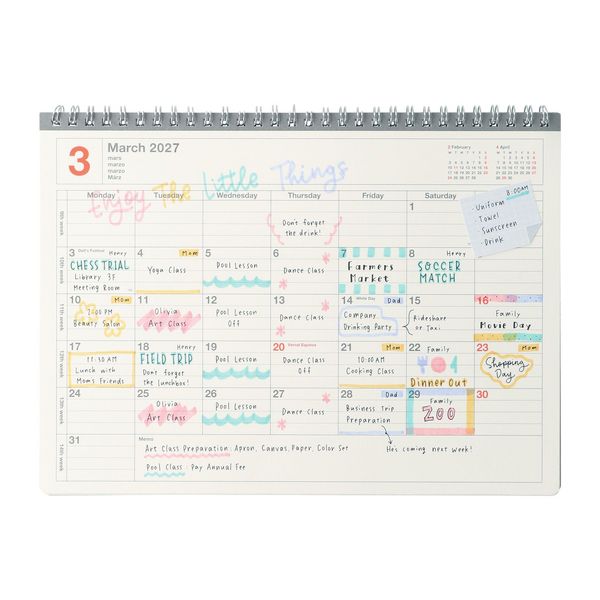 3
March 2027
mars
marzo
marzo
März
2 February
4 April
Enjoy The Little Things
Monday Tuesday Wednesday Thursday Friday Saturday
9th week
1
Don't forget
the drink!
8:00AM
· Uniform
· Towel
· Sunscreen
· Drink
10th week
3 Doll's Festival Henry
CHESS TRIAL
Library 3F
Meeting Room
4 Mom
Yoga Class
5
Pool Lesson
6
Dance Class
7
Farmers
Market
8 Henry
SOCCER
MATCH
11th week
10 Mom
7:00 PM
Beauty Salon
11
Olivia
Art Class
12
Pool Lesson
Off
13
Dance Class
14 White Day Dad
Company
Drinking Party
15
Rideshare
or Taxi
16
Family
Movie Day
12th week
17
11:30AM
Lunch with
Mom's Friends
18 Henry
FIELD TRIP
Don't forget
the lunchbox!
19
Pool Lesson
20 Vernal Equinox
Dance Class
Off
21 Mom
10:00AM
Cooking Class
22 Family
Dinner Out
23 Mom
Shopping
Day
13th week
24
25
Olivia
Art Class
26
Pool Lesson
27
Dance Class
28 Dad
Business Trip
Preparation
29 Family
ZOO
30
He's coming next week!
14th week
31
Memo
Art Class Preparation : Apron, Canvas, Paper, Color Set
Pool Class : Pay Annual Fee